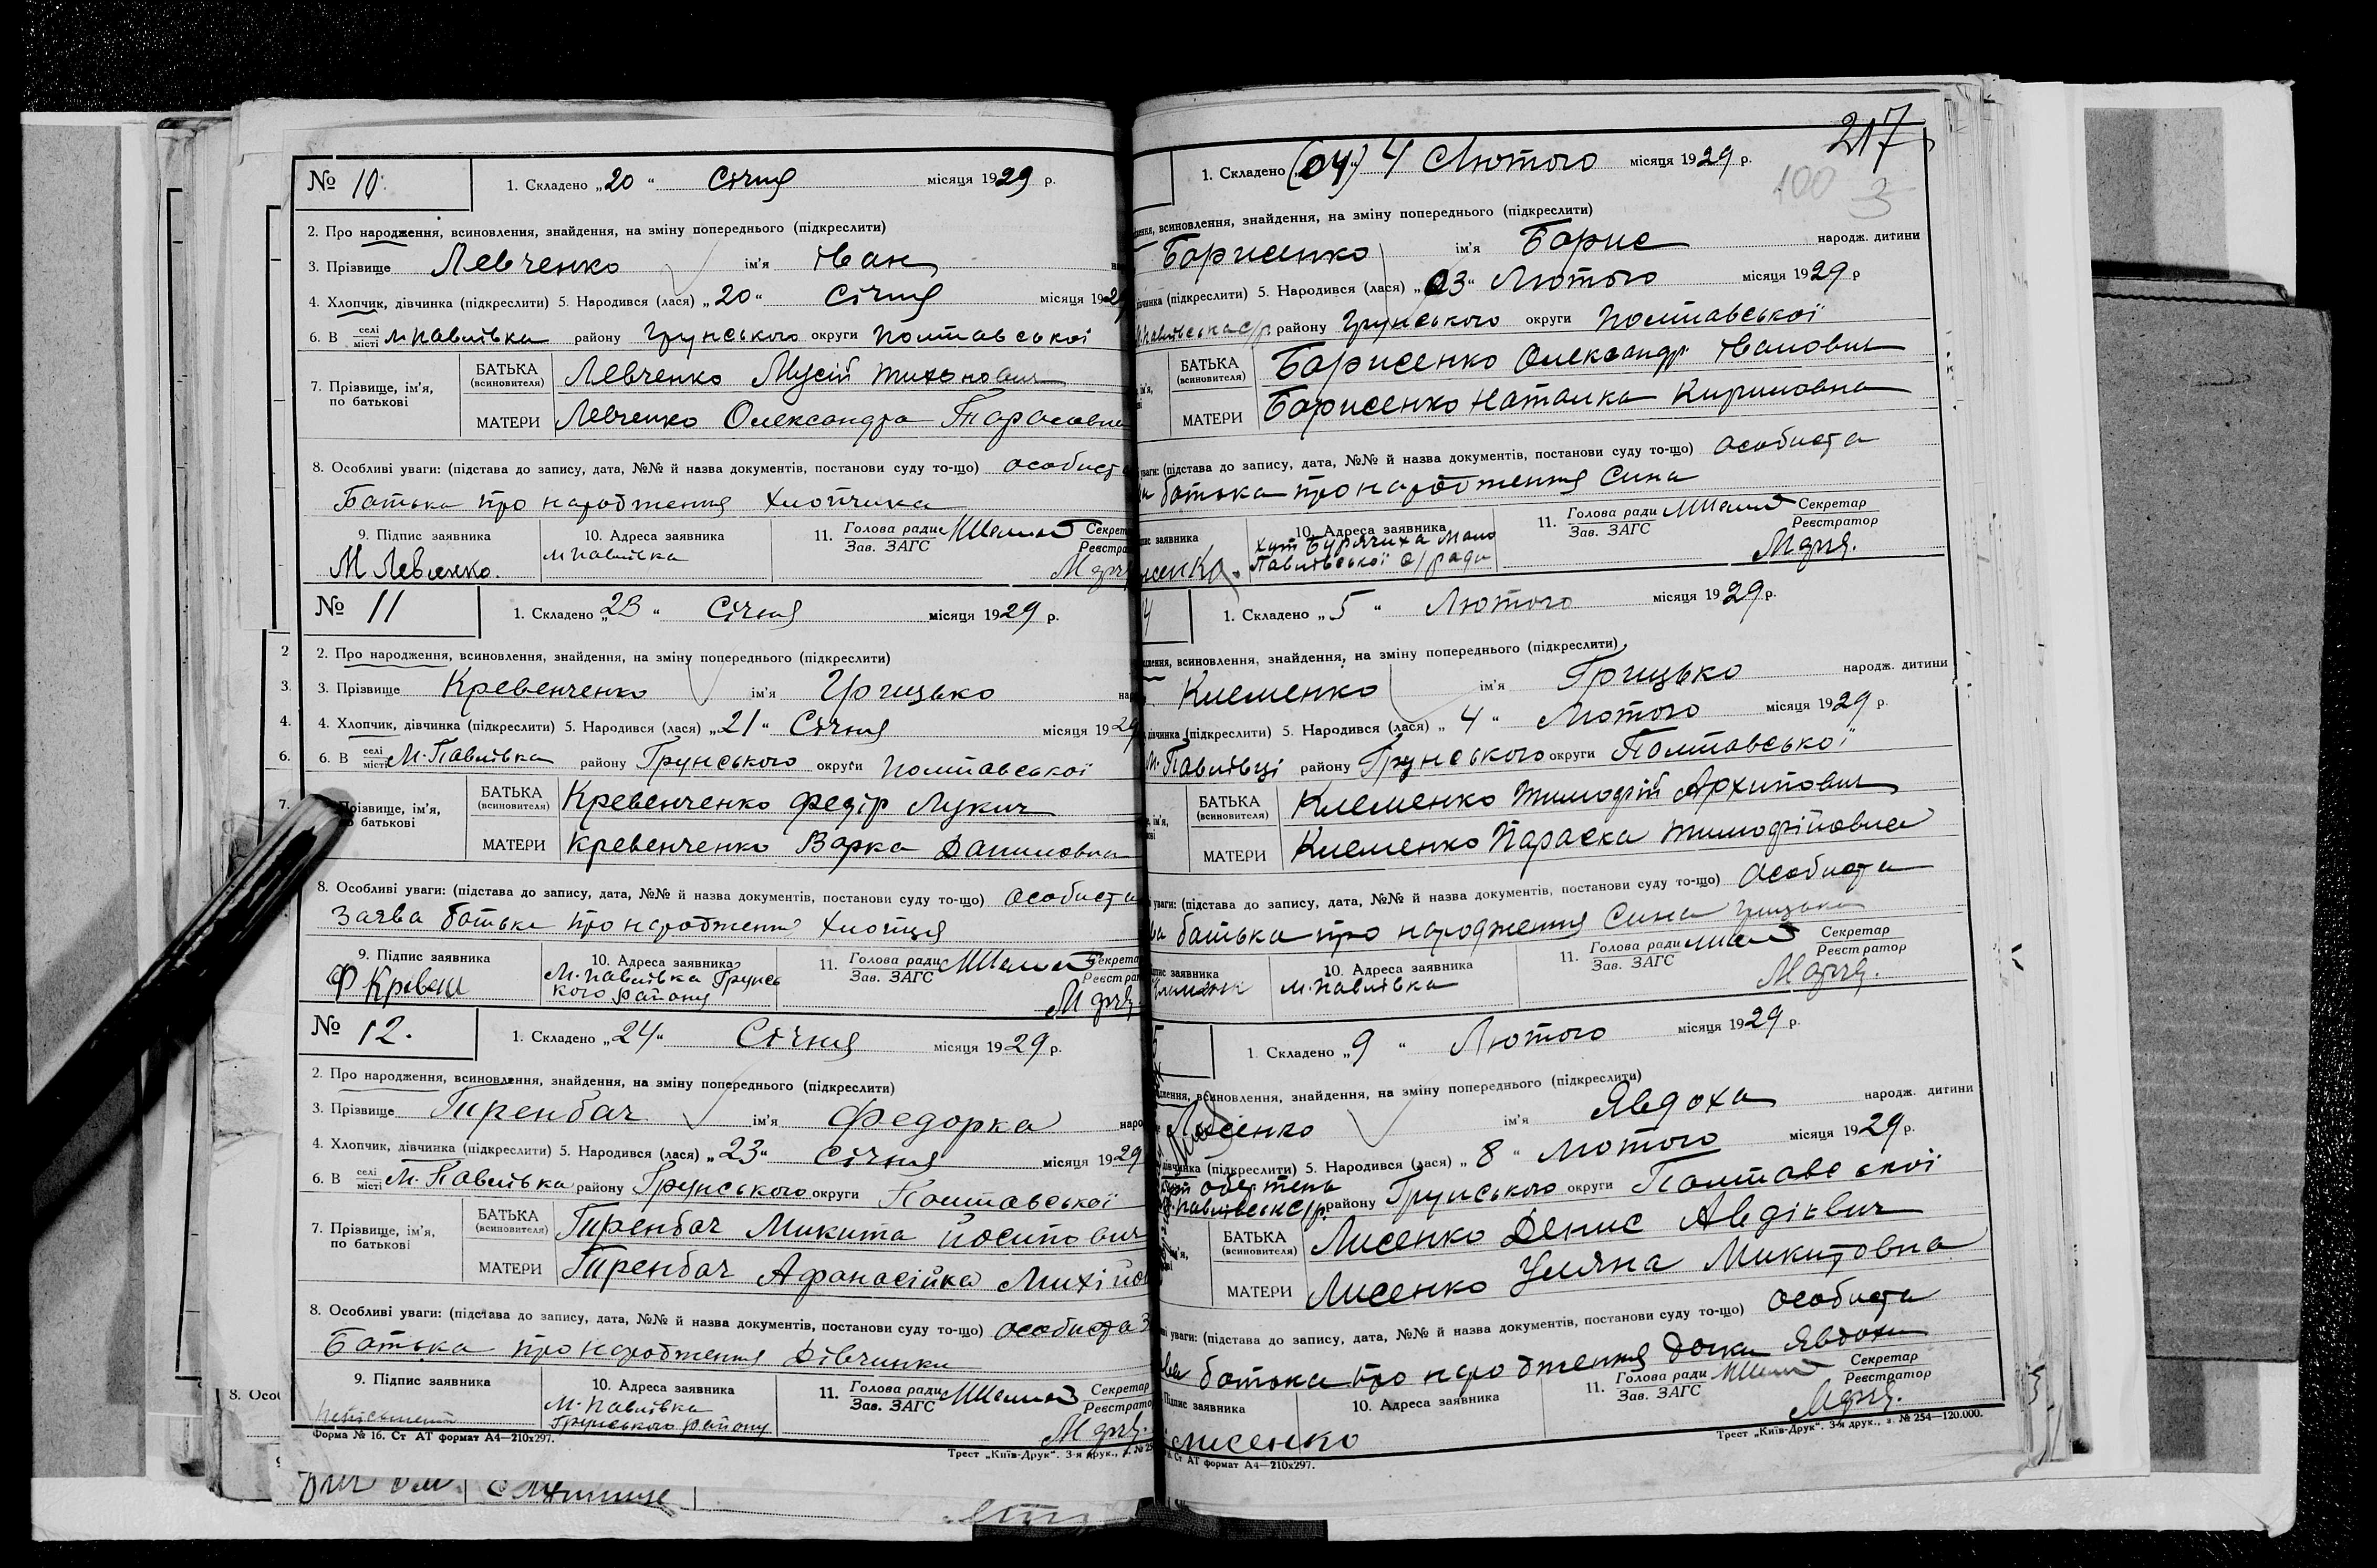 № 10.
1. Складено „20“ Січня місяця 1929 р.
2. Про народження, всиновлення, знайдення, на зміну попереднього (підкреслити)
3. Прізвище Левченко ім'я Іван
4. Хлопчик, дівчинка (підкреслити) 5. Народився (лася) „20“ Січня місяця 1929
6. В селі місті М Павлівка району Грунського округи Полтавської
7. Прізвище, ім'я, по батькові
БАТЬКА (всиновителя) Левченко Мусій Тихонович
МАТЕРИ Левченко Олександра Тарасовна
8. Особливі уваги: (підстава до запису, дата, №№ й назва документів, постанови суду то-що) особиста
Батька про народження хлопчика
9. Підпис заявника 10. Адреса заявника 11. Голова ради Зав. ЗАГС
М Левченко. М Павлівка
№ 11
1. Складено „23“ Січня місяця 1929 р.
2. Про народження, всиновлення, знайдення, на зміну попереднього (підкреслити)
3. Прізвище Кревенченко ім'я Грицько
4. Хлопчик, дівчинка (підкреслити) 5. Народився (лася) „21“ Січня місяця 1929
6. В селі місті М. Павлівка району Грунського округи Полтавської
Прізвище, ім'я, батькові
БАТЬКА (всиновителя) Кревенченко Федір Лукич
МАТЕРИ Кревенченко Варка Даниловна
8. Особливі уваги: (підстава до запису, дата, №№ й назва документів, постанови суду то-що) особиста
Заява батька про народження хлопця
9. Підпис заявника 10. Адреса заявника 11. Голова ради Зав. ЗАГС
М. Павлівка Грунсь
кого району
№ 12.
1. Складено „24“ Січня місяця 1929 р.
2. Про народження, всиновлення, знайдення, на зміну попереднього (підкреслити)
3. Прізвище Гиренбач ім'я Федорка
4. Хлопчик, дівчинка (підкреслити) 5. Народився (лася) „23“ Січня місяця 1929
6. В селі місті М. Павлівка району Грунського округи Полтавської
7. Прізвище, ім'я, по батькові
БАТЬКА (всиновителя) Гиренбач Микита Йосипович
МАТЕРИ Гиренбач Афанасійка
8. Особливі уваги: (підстава до запису, дата, №№ й назва документів, постанови суду то-що) особиста
Батька про народження дівчинки
9. Підпис заявника 10. Адреса заявника 11. Голова ради Зав. ЗАГС Секретар
М. Павлівка
Грунського району
Форма № 16. Ст АТ формат А4—210х297.
Трест „Київ-Друк“. 3-я друк.,
217
100
3
1. Складено (04) 4 Лютого місяця 1929 р.
всиновлення, знайдення, на зміну попереднього (підкреслити)
Борисенко ім'я Борис народж. дитини
(підкреслити) 5. Народився (лася) „03“ Лютого місяця 1929 р
району Грунського округи Полтавської
БАТЬКА (всиновителя) Борисенко Олександр Іванович
МАТЕРИ Борисенко Наталка Кириловна
(підстава до запису, дата, №№ й назва документів, постанови суду то-що) особиста
батька про народження Сина
заявника 10. Адреса заявника 11. Голова ради Зав. ЗАГС Секретар Реєстратор
хут Бурячиха Мало
Павлівської с/ради
1. Складено „5“ Лютого місяця 1929 р.
всиновлення, знайдення, на зміну попереднього (підкреслити)
Клеменко ім'я Грицько народж. дитини
(підкреслити) 5. Народився (лася) „4“ Лютого місяця 1929 р.
М. Павлівці району Грунського округи Полтавської
БАТЬКА (всиновителя) Клеменко Тимофій Архипович
МАТЕРИ Клеменко Параска Тимофійовна
уваги: (підстава до запису, дата, №№ й назва документів, постанови суду то-що) особиста
батька про народження Сина Грицька
заявника 10. Адреса заявника 11. Голова ради Зав. ЗАГС Секретар Реєстратор
М. Павлівка
1. Складено „9“ Лютого місяця 1929 р.
всиновлення, знайдення, на зміну попереднього (підкреслити)
Лисенко ім'я Явдоха народж. дитини
(підкреслити) 5. Народився (лася) „8“ Лютого місяця 1929 р.
району Грунського округи Полтавської
БАТЬКА (всиновителя) Лисенко Денис Авдієвич
МАТЕРИ Лисенко Уляна Микитовна
уваги: (підстава до запису, дата, №№ й назва документів, постанови суду то-що) особиста
батька про народження дочки Явдохи
Підпис заявника 10. Адреса заявника 11. Голова ради Зав. ЗАГС Секретар Реєстратор
Лисенко
Ст АТ формат А4—210х297.
Трест „Київ-Друк“. 3-я друк., з. № 254—120.000.